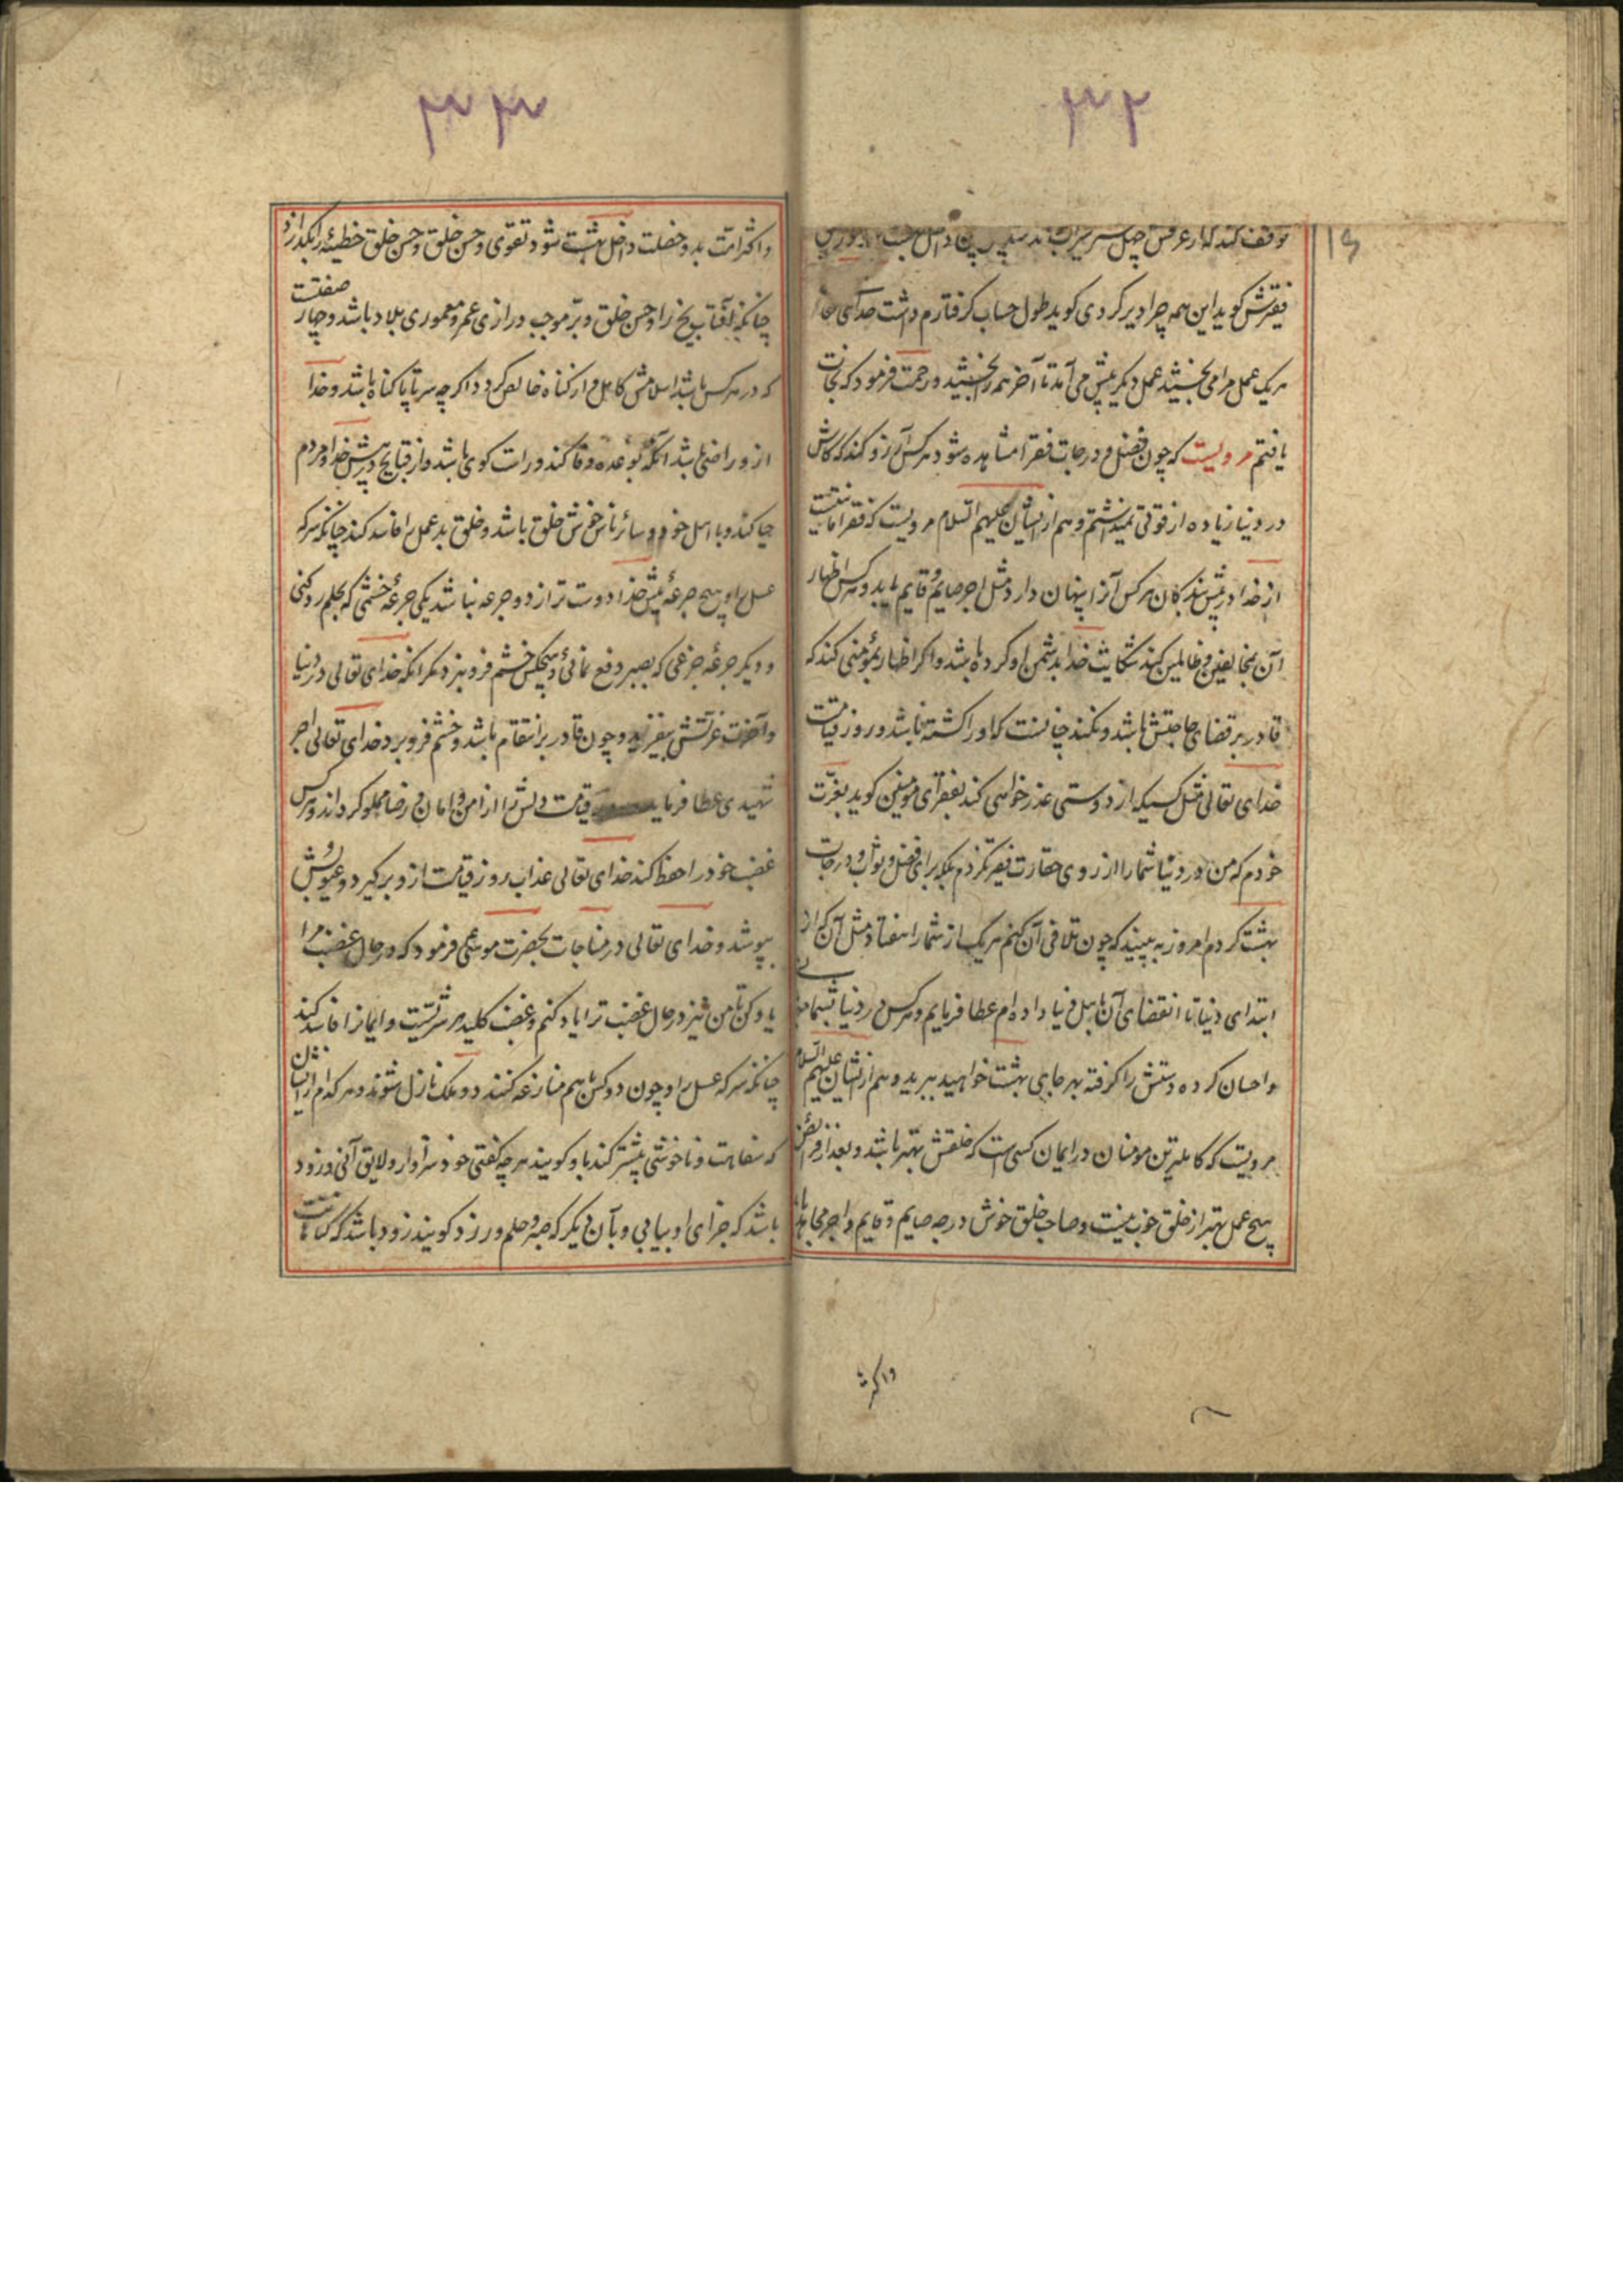 ۳۲
موقف کند که از عرقش چهل شتر سیراب شوند پس داخل بهشت
فقیرش کوید این همه چرا دیر کردی کوید طول حساب کرفتارم داشت خدای تعالی
هر یک عمل مرا می بخشید عمل دیکر پیش می آمد تا آخر همه را بخشید و رحمت فرمود که نجات
یافتم مرویست که چون فضل و درجات فقرا مشاهده شود هر کس آرزو کند که کاش
در دنیا زیاده از قوتی نمیداشتم و هم از ایشان علیهم السلام مرویست که فقر امانتیست
از خدا در پیش بندکان هر کس آنرا پنهان دارد مثل اجر صایم و قایم یابد و هر کس اظهار
آن بمخالفین و ظالمین کند شکایت خدا بدشمن او کرده باشد و اکر اظهار بمؤمنی کند که
قادر بر قضای حاجتش باشد و نکند چنانست که او را کشته باشد و روز قیامت
خدای تعالی مثل کسیکه از دوستی عذرخواهی کند بفقرای مؤمنین کوید بعزت
خودم که من در دنیا شما را از روی حقارت فقیر نکردم بلکه برای فضل و ثواب و درجات
بهشت کردم امروز به بینید که چون تلافی آن کنم هر یک از شما را هفتاد مثل آن که از
ابتدای دنیا تا انقضای آن باهل دنیا داده ام عطا فرمایم و هر کس در دنیا بشما
و احسان کرده دستش را کرفته بهر جای بهشت خواهید ببرید و هم از ایشان علیهم السلام
مرویست که کاملترین مومنان در ایمان کسی است که خلقش بهتر باشد و بعد از فرائض
هیچ عمل بهتر از خلق خوب نیست و صاحب خلق خوش درجه صایم و قایم و اجر مجاهد
و اکثر
۳۳
و اکثر امت بدو خصلت داخل بهشت شود تقوی و حسن خلق و حسن خلق خطیئه را بکدازد
چنانکه آفتاب یخ را و حسن خلق و بر موجب درازی عمر و معموری بلاد باشد و چهار صفتست
که در هر کس باشد اسلامش کامل و از کناه خالص کردد اکرچه سر تا پا کناه باشد و خدا
ازو راضی باشد آنکه بوعده وفا کند و راست کوی باشد و از قبایح پیش خدا و مردم
حیا کند و با اهل خود و سائر ناس خوش خلق باشد و خلق بد عمل را فاسد کند چنانکه سرکه
عسل را و هیچ جرعه پیش خدا دوست تر از دو جرعه نباشد یکی جرعه خشمی که بحلم رد کنی
و دیکر جرعه جزعی که بصبر دفع نمائی و هیچکس خشم فرو نبرد مکر انکه خدای تعالی در دنیا
و آخرت عزتش بیفزاید و چون قادر بر انتقام باشد و خشم فرو برد خدای تعالی اجر
شهیدی عطا فرماید قیامت دلش را از امن و امان و رضا مملو کرداند و هر کس
غضب خود را حفظ کند خدای تعالی عذاب روز قیامت ازو برکیرد و عیوبش
بپوشد و خدای تعالی در مناجات بحضرت موسی فرمود که در حال غضب مرا
یاد کن تا من نیز در حال غضب ترا یاد کنم و غضب کلید هر شریست و ایمانرا فاسد کند
چنانکه سرکه عسل را و چون دو کس با هم منازعه کنند دو ملک نازل شوند و هر کدام از ایشان
که سفاهت و ناخوشی بیشتر کند باو کویند هر چه کفتی خود سزاوار و لایق آنی و زود
باشد که جزای او بیابی و بآن دیکر که صبر و حلم ورزد کویند زود باشد که